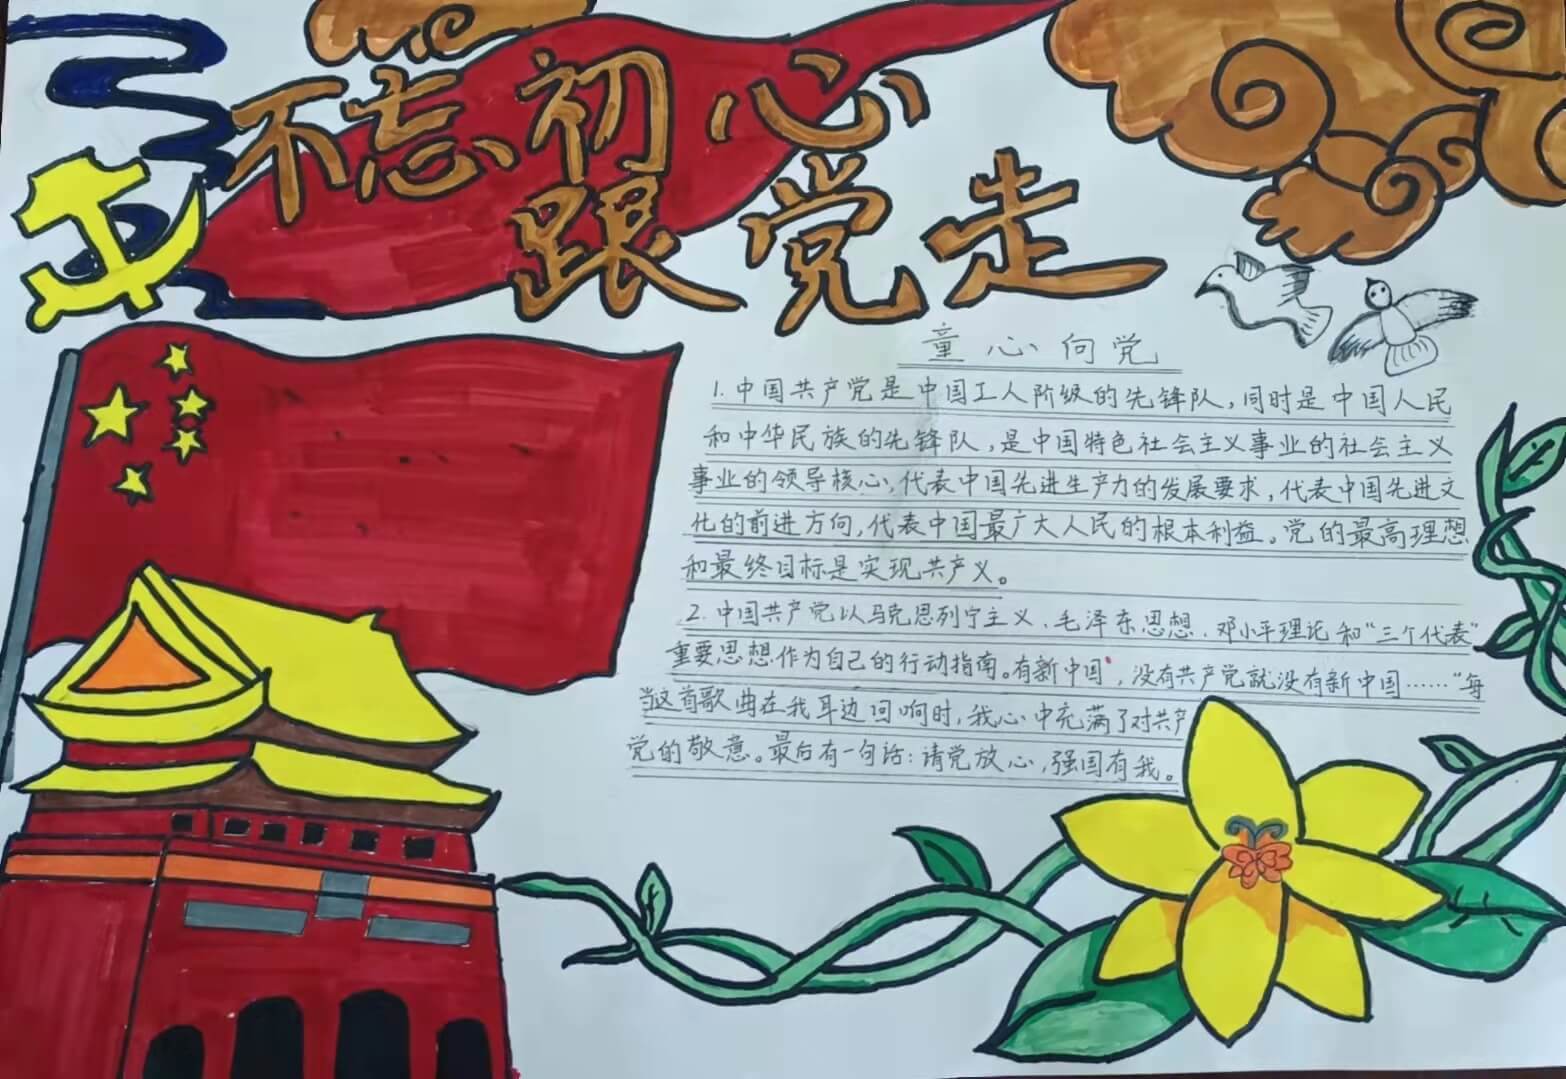 不忘初心
跟党走
童心向党
1.中国共产党是中国工人阶级的先锋队,同时是中国人民
和中华民族的先锋队,是中国特色社会主义事业的社会主义
事业的领导核心,代表中国先进生产力的发展要求,代表中国先进文
化的前进方向,代表中国最广大人民的根本利益。党的最高理想
和最终目标是实现共产义。
2.中国共产党以马克思列宁主义、毛泽东思想、邓小平理论和“三个代表”
重要思想作为自己的行动指南。有新中国,没有共产党就没有新中国……“每
当这首歌曲在我耳边回响时,我心中充满了对共产
党的敬意。最后有一句话:请党放心,强国有我。